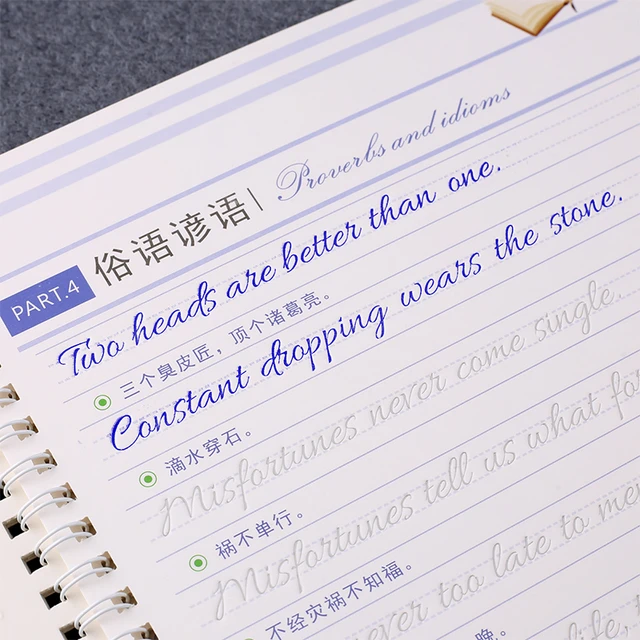 PART.4 俗语谚语 Proverbs and idioms
Two heads are better than one.
三个臭皮匠，顶个诸葛亮。
Constant dropping wears the stone.
滴水穿石。
Misfortunes never come single.
祸不单行。
Misfortunes tell us what
不经灾祸不知福。
too late to
晚。